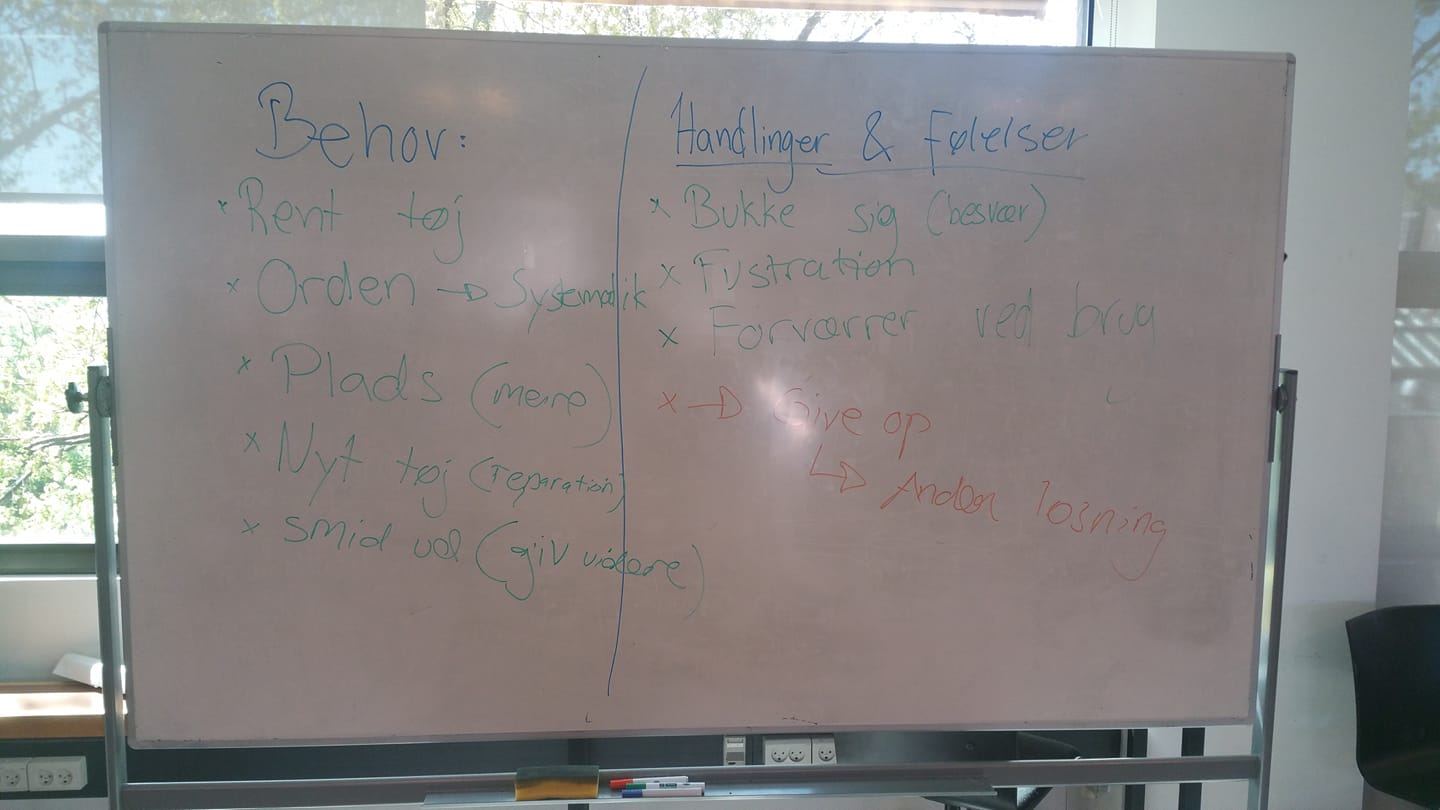 Behov:
× Rent tøj
× Orden → Systematik
× Plads (mere)
× Nyt tøj (reparation)
× smid ud (giv videre)
Handlinger & Følelser
× Bukke sig (besvær)
× Frustration
× Forværrer ved brug
× → Give op
↳ Anden løsning